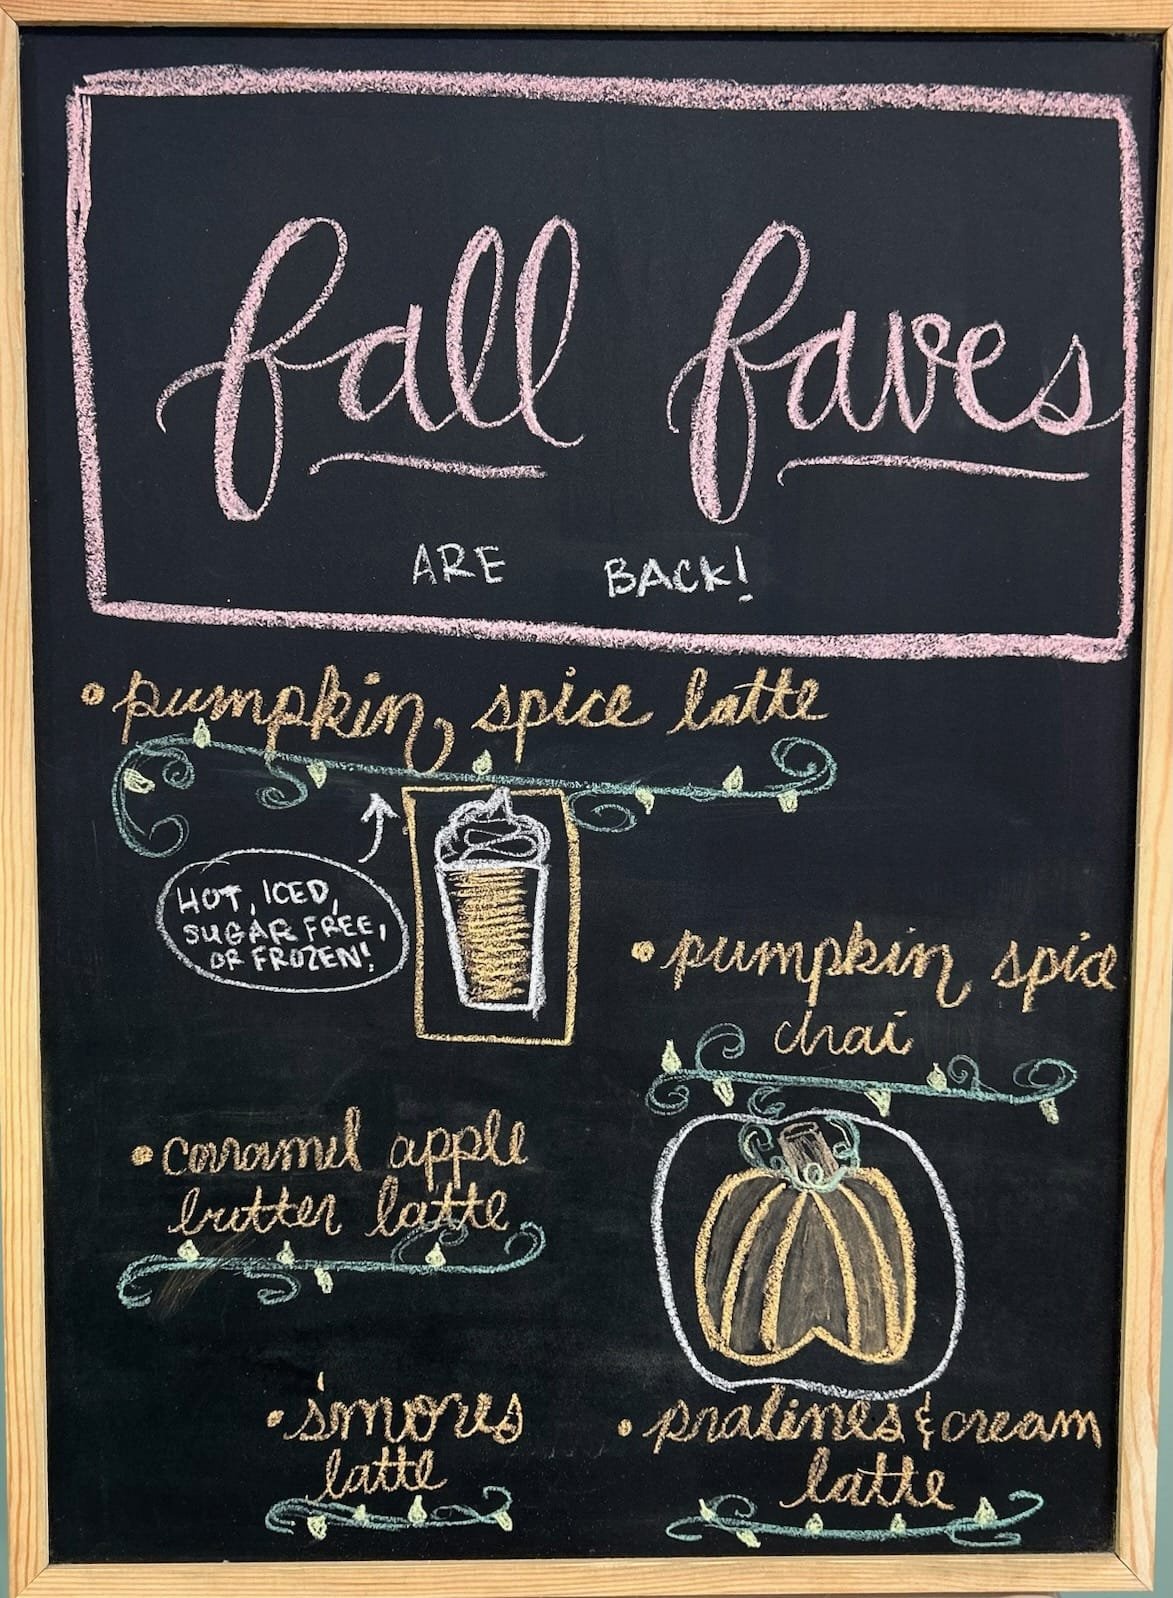 fall faves
ARE BACK!
• pumpkin spice latte
HOT, ICED,
SUGAR FREE,
OR FROZEN!
• pumpkin spice
chai
• caramel apple
butter latte
• s'mores
latte
• pralines & cream
latte